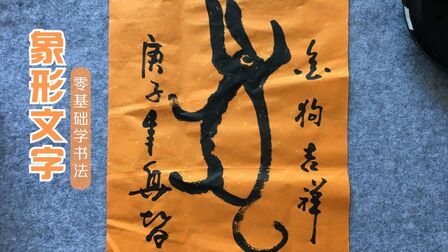 象形文字
零基础学书法
金狗吉祥
庚子年